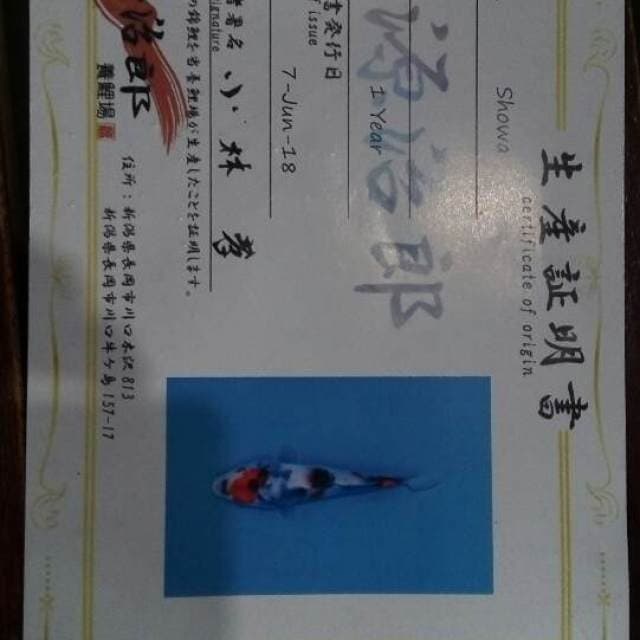 生産証明書
certificate of origin
Showa
1 Year
7-Jun-18
小林 孝
の錦鯉を当養鯉場が生産したことを証明します。
養鯉場
住所：新潟県長岡市川口木沢813
新潟県長岡市川口牛ケ島157-17